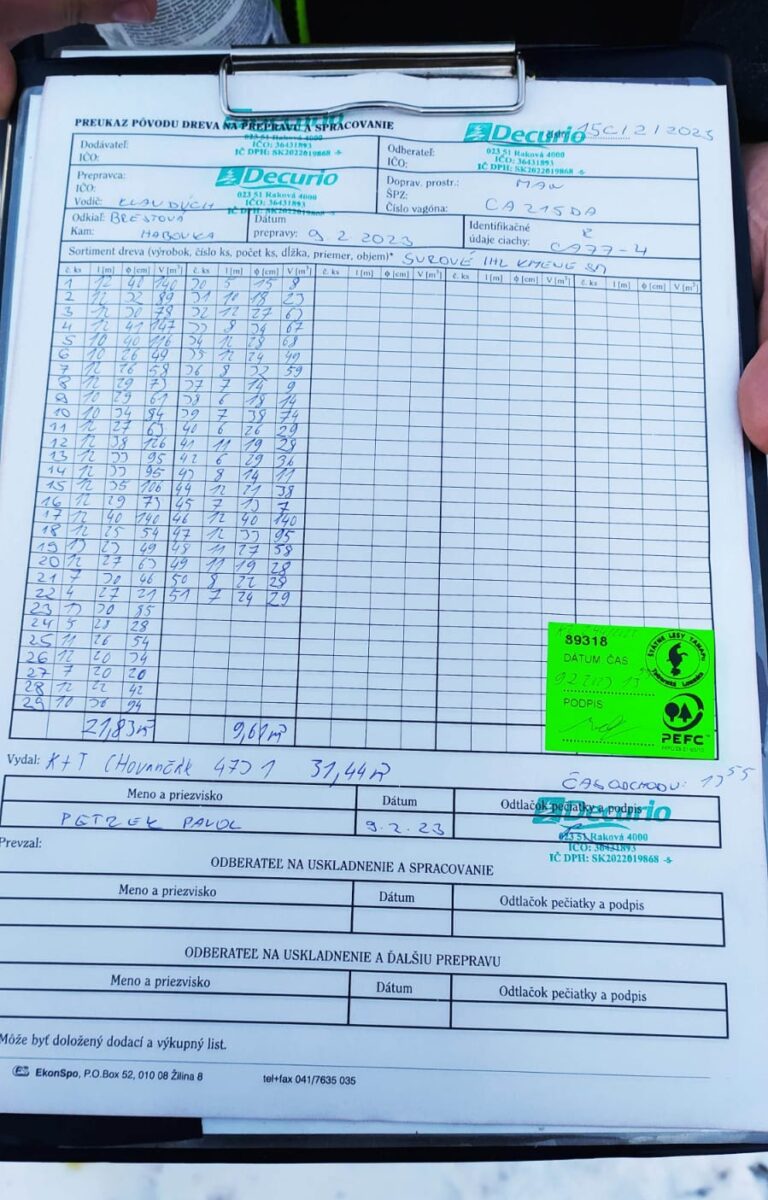 PREUKAZ PÔVODU DREVA NA PREPRAVU A SPRACOVANIE
Decurio
023 51 Raková 4000
IČO: 36431893
IČ DPH: SK2022019868
číslo: 15C/2/2023
Dodávateľ:
IČO:
Odberateľ:
IČO:
Decurio
023 51 Raková 4000
IČO: 36431893
IČ DPH: SK2022019868
Prepravca:
IČO:
Vodič: KLAUDÚCH
Decurio
023 51 Raková 4000
IČO: 36431893
Doprav. prostr.: MAN
ŠPZ:
Číslo vagóna: CA 215DA
Odkiaľ: BRESTOVÁ
Kam: HABOVKA
Dátum
prepravy: 9.2.2023
Identifikačné
údaje ciachy: CA77-4
Sortiment dreva (výrobok, číslo ks, počet ks, dĺžka, priemer, objem)* SUROVÉ IHL KMENE SM
č. ks l [m] ϕ [cm] V [m³] č. ks l [m] ϕ [cm] V [m³] č. ks l [m] ϕ [cm] V [m³] č. ks l [m] ϕ [cm] V [m³] č. ks l [m] ϕ [cm] V [m³]
1 12 40 140 30 5 15 8
2 12 32 89 31 10 18 23
3 12 30 78 32 12 27 63
4 12 41 147 33 8 34 67
5 10 40 116 34 12 28 68
6 10 26 49 35 12 24 49
7 12 26 58 36 8 32 59
8 12 29 73 37 7 14 9
9 10 29 61 38 6 18 14
10 10 34 84 39 7 38 74
11 12 27 63 40 6 26 29
12 12 38 126 41 11 19 28
13 12 33 95 42 6 29 36
14 12 33 95 43 8 14 11
15 12 35 106 44 12 21 38
16 12 29 73 45 7 13 7
17 12 40 140 46 12 40 140
18 12 25 54 47 12 33 95
19 13 23 49 48 11 27 58
20 12 27 63 49 11 19 28
21 7 30 46 50 8 22 28
22 4 27 21 51 7 24 29
23 13 30 85
24 5 28 28
25 11 26 54
26 12 20 34
27 7 20 20
28 12 22 42
29 10 36 94
21,83m³ 9,61m³
89318
DÁTUM ČAS
PODPIS
ŠTÁTNE LESY TANAPU
Tatranská Lomnica
PEFC™
Vydal: K+T CHOVANČÁK 473 1 31,44m³
ČAS ODCHODU: 13 55
Meno a priezvisko Dátum Odtlačok pečiatky a podpis
PETREK PAVOL 9.2.23
Decurio
023 51 Raková 4000
IČO: 36431893
IČ DPH: SK2022019868
Prevzal:
ODBERATEĽ NA USKLADNENIE A SPRACOVANIE
Meno a priezvisko Dátum Odtlačok pečiatky a podpis
ODBERATEĽ NA USKLADNENIE A ĎALŠIU PREPRAVU
Meno a priezvisko Dátum Odtlačok pečiatky a podpis
Môže byť doložený dodací a výkupný list.
EkonSpo, P.O.Box 52, 010 08 Žilina 8 tel+fax 041/7635 035